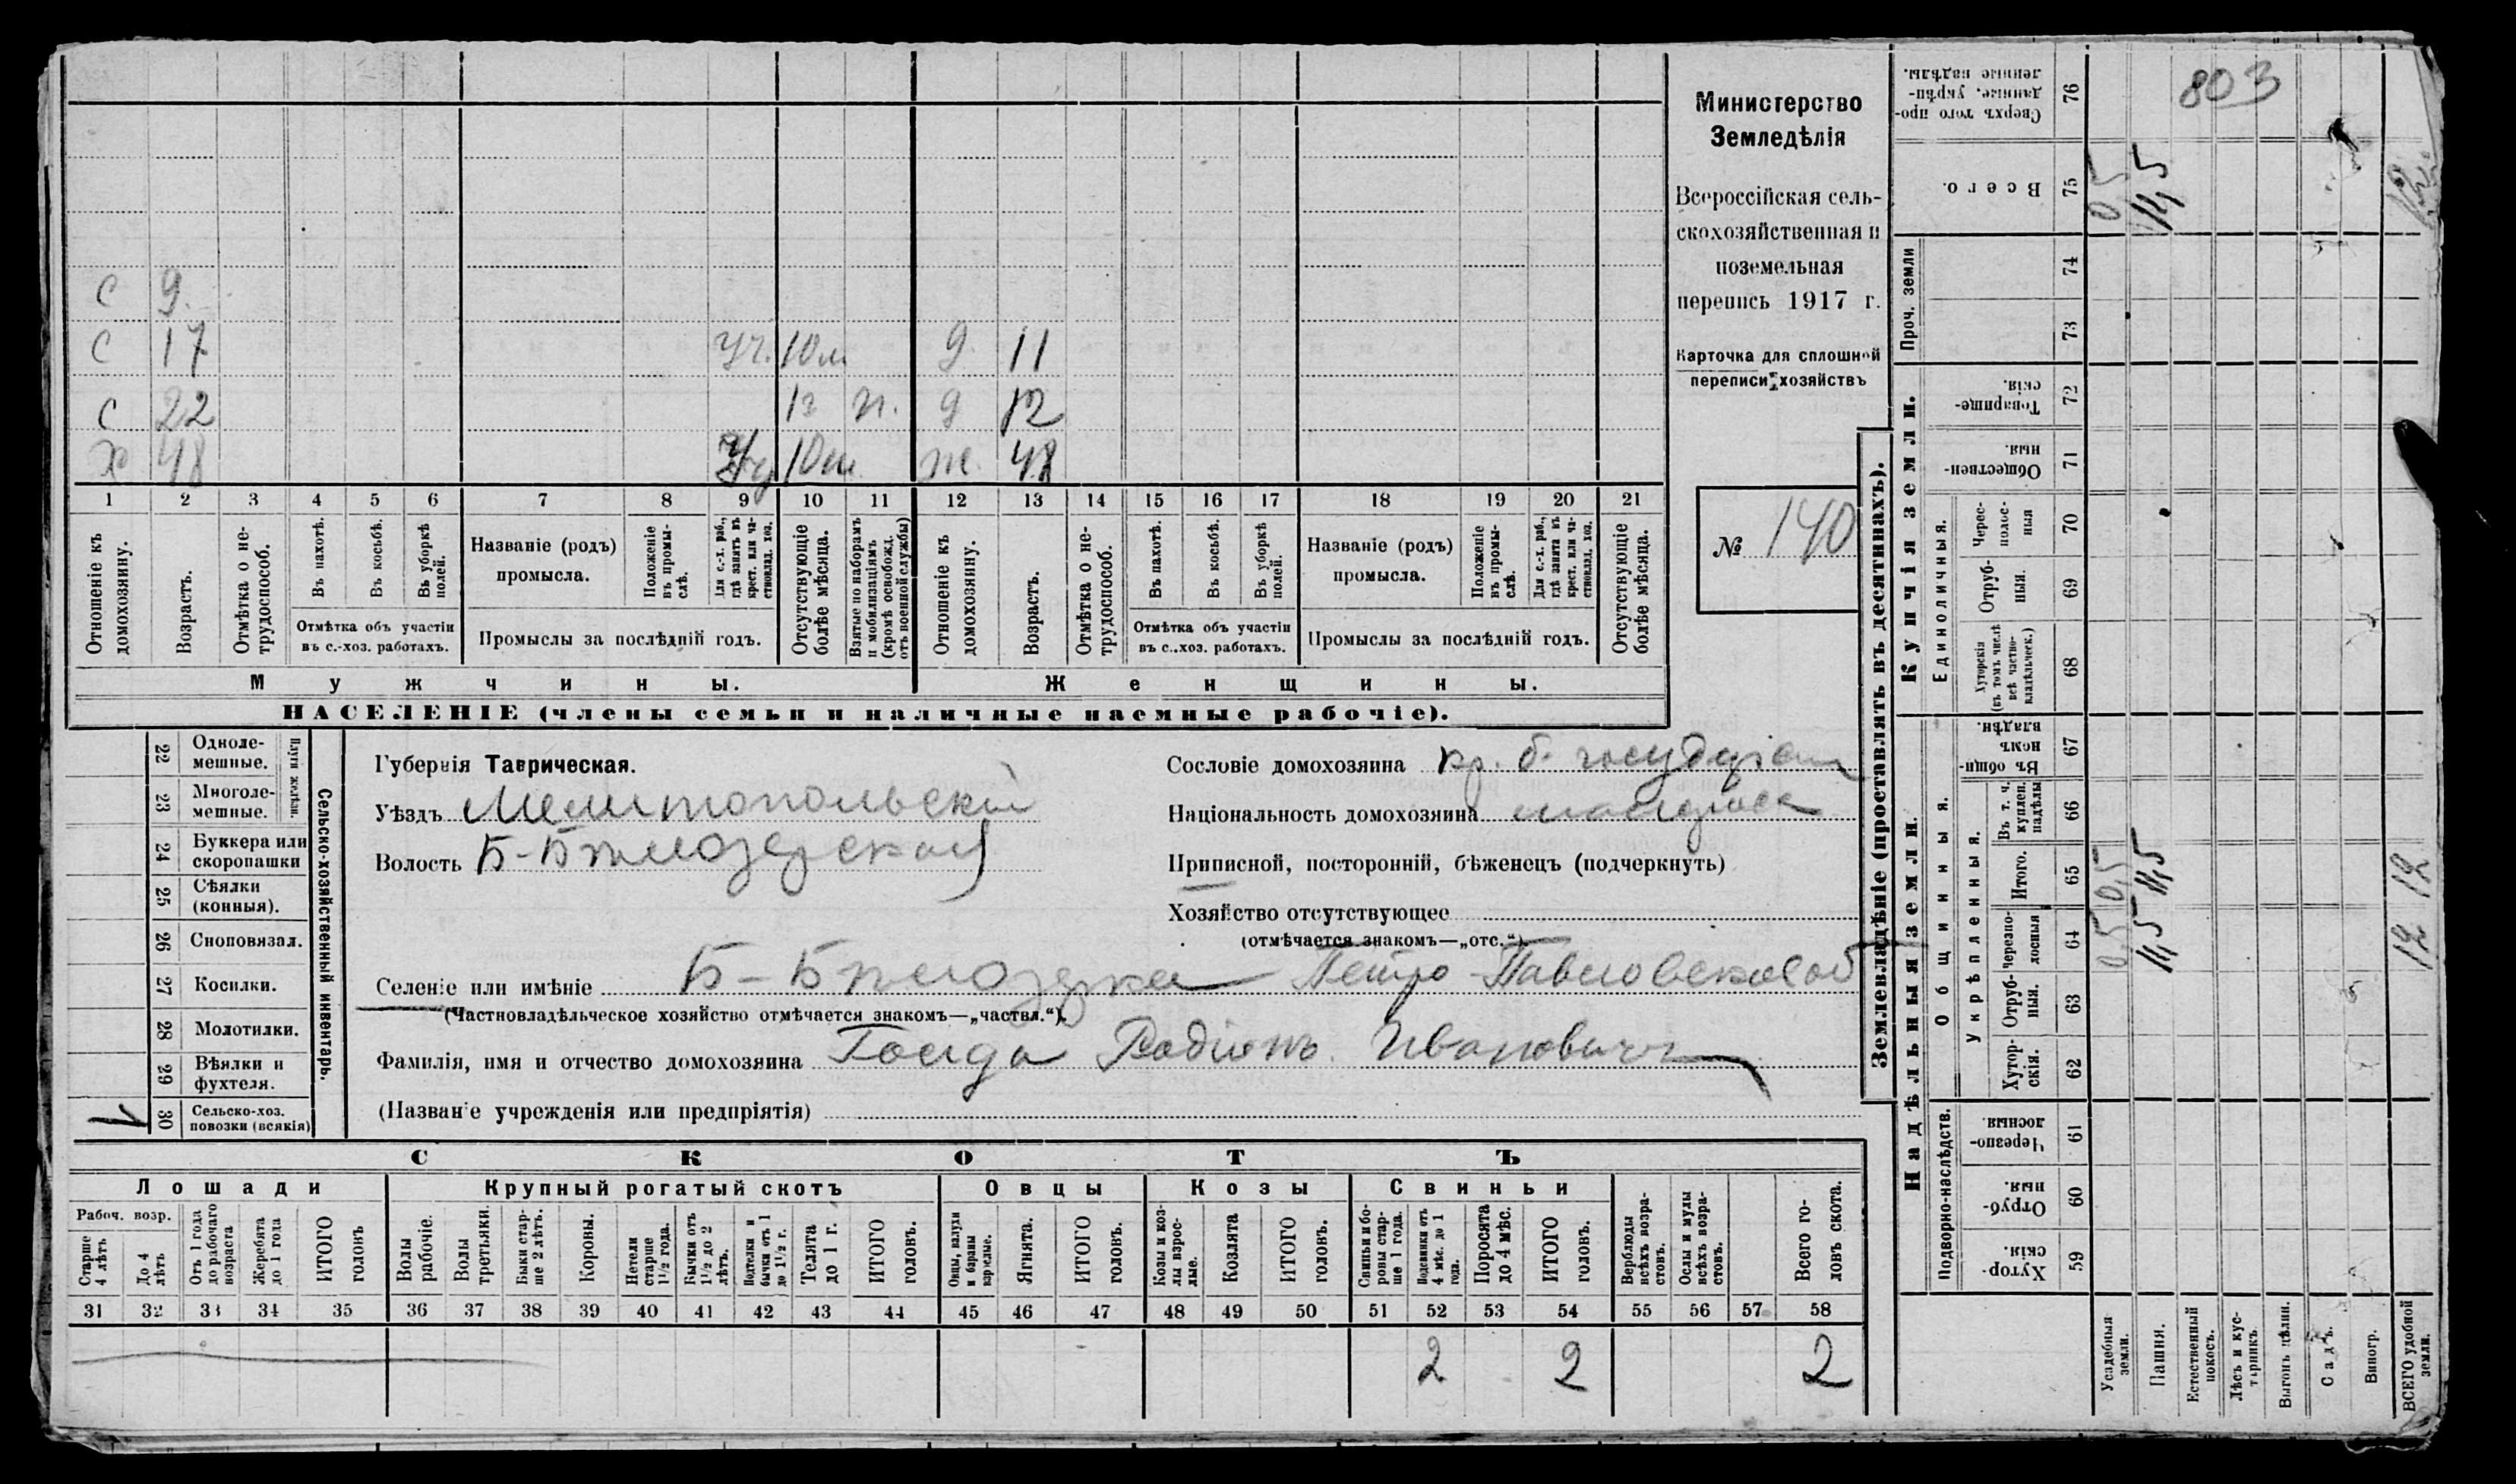 803
Министерство
Земледѣлія
Всероссійская сель-
скохозяйственная и
поземельная
перепись 1917 г.
Карточка для сплошной
переписи хозяйствъ
№ 140
с 9
с 17 уч. 10м д. 11
с 22 1г п. д 12
х 48 10м ж. 48
1 2 3 4 5 6 7 8 9 10 11 12 13 14 15 16 17 18 19 20 21
Отношеніе къ домохозяину.
Возрастъ.
Отмѣтка о не-трудоспособ.
Въ пахотѣ.
Въ косьбѣ.
Въ уборкѣ полей.
Отмѣтка объ участіи
въ с.-хоз. работахъ.
Названіе (родъ)
промысла.
Положеніе въ промы-слѣ.
Для с.-х. раб., гдѣ занятъ въ крест. или ча-стновлад. хоз.
Промыслы за послѣдній годъ.
Отсутствующіе болѣе мѣсяца.
Взятые по наборамъ и мобилизаціямъ (кромѣ освобожд. отъ военной службы)
Отношеніе къ домохозяину.
Возрастъ.
Отмѣтка о не-трудоспособ.
Въ пахотѣ.
Въ косьбѣ.
Въ уборкѣ полей.
Отмѣтка объ участіи
въ с..хоз. работахъ.
Названіе (родъ)
промысла.
Положеніе въ промы-слѣ.
Для с.-х. раб., гдѣ занята въ крест. или ча-стновлад. хоз.
Промыслы за послѣдній годъ.
Отсутствующіе болѣе мѣсяца.
Мужчины.
Женщины.
НАСЕЛЕНІЕ (члены семьи и наличные наемные рабочіе).
22 Одноле-мешные.
23 Многоле-мешные.
Плуги желѣзн.
24 Буккера или скоропашки
25 Сѣялки (конныя).
26 Сноповязал.
27 Косилки.
28 Молотилки.
29 Вѣялки и фухтеля.
30 Сельско-хоз. повозки (всякія)
Сельско-хозяйственный инвентарь.
Губернія Таврическая.
Уѣздъ Мелитопольскій
Волость Б-Бѣлозерской
Сословіе домохозяина кр. б.
Національность домохозяина
Приписной, посторонній, бѣженецъ (подчеркнуть)
Хозяйство отсутствующее
(отмѣчается знакомъ—„отс.“).
Селеніе или имѣніе Б-Бѣлозерка Петро-Павловское об
(Частновладѣльческое хозяйство отмѣчается знакомъ—„частвл.“).
Фамилія, имя и отчество домохозяина Родіонъ Ивановичъ
(Названіе учрежденія или предпріятія)
СКОТЪ
Лошади
Крупный рогатый скотъ
Овцы
Козы
Свиньи
Рабоч. возр.
Старше 4 лѣтъ
До 4 лѣтъ
Отъ 1 года до рабочаго возраста
Жеребята до 1 года
ИТОГО головъ
Волы рабочіе.
Волы третьяки.
Быки стар-ше 2 лѣтъ.
Коровы.
Нетели старше 1½ года.
Бычки отъ 1½ до 2 лѣтъ.
Подтелки и бычки отъ 1 до 1½ г.
Телята до 1 г.
ИТОГО головъ.
Овцы, валухи и бараны взрослые.
Ягнята.
ИТОГО головъ.
Козы и коз-лы взрос-лые.
Козлята
ИТОГО головъ.
Свиньи и бо-ровы стар-ше 1 года.
Подсвинки отъ 4 мѣс. до 1 года.
Поросята до 4 мѣс.
ИТОГО головъ.
Верблюды всѣхъ возра-стовъ.
Ослы и мулы всѣхъ возра-стовъ.
Всего го-ловъ скота.
31 32 33 34 35 36 37 38 39 40 41 42 43 44 45 46 47 48 49 50 51 52 53 54 55 56 57 58
2 2 2
Землевладѣніе (проставлять въ десятинахъ).
Купчія земли.
Надѣльныя земли.
76 Сверхъ того про-данные, укрѣп-ленные надѣлы.
75 Всего. 0,5 11,5 12
Проч. земли
74
73
72 Товарище-скія.
71 Обществен-ныя.
Единоличныя.
70 Черес-полос-ныя
69 Отруб-ныя.
68 Хуторскія (въ томъ числѣ всѣ частно-владѣльческ.)
67 Въ общин-номъ владѣн.
Общинныя.
Укрѣпленныя.
66 Въ т. ч. куплен. надѣлы
65 Итого. 0,5 11,5 12
64 Черезпо-лосныя 0,5 11,5 12
63 Отруб-ныя.
62 Хутор-скія.
Подворно-наслѣдств.
61 Черезпо-лосныя
60 Отруб-ныя.
59 Хутор-скія.
Усадебныя земли.
Пашня.
Естественный покосъ.
Лѣсъ и кус-тарникъ.
Выгонъ цѣлин.
Садъ.
Виногр.
ВСЕГО удобной земли.